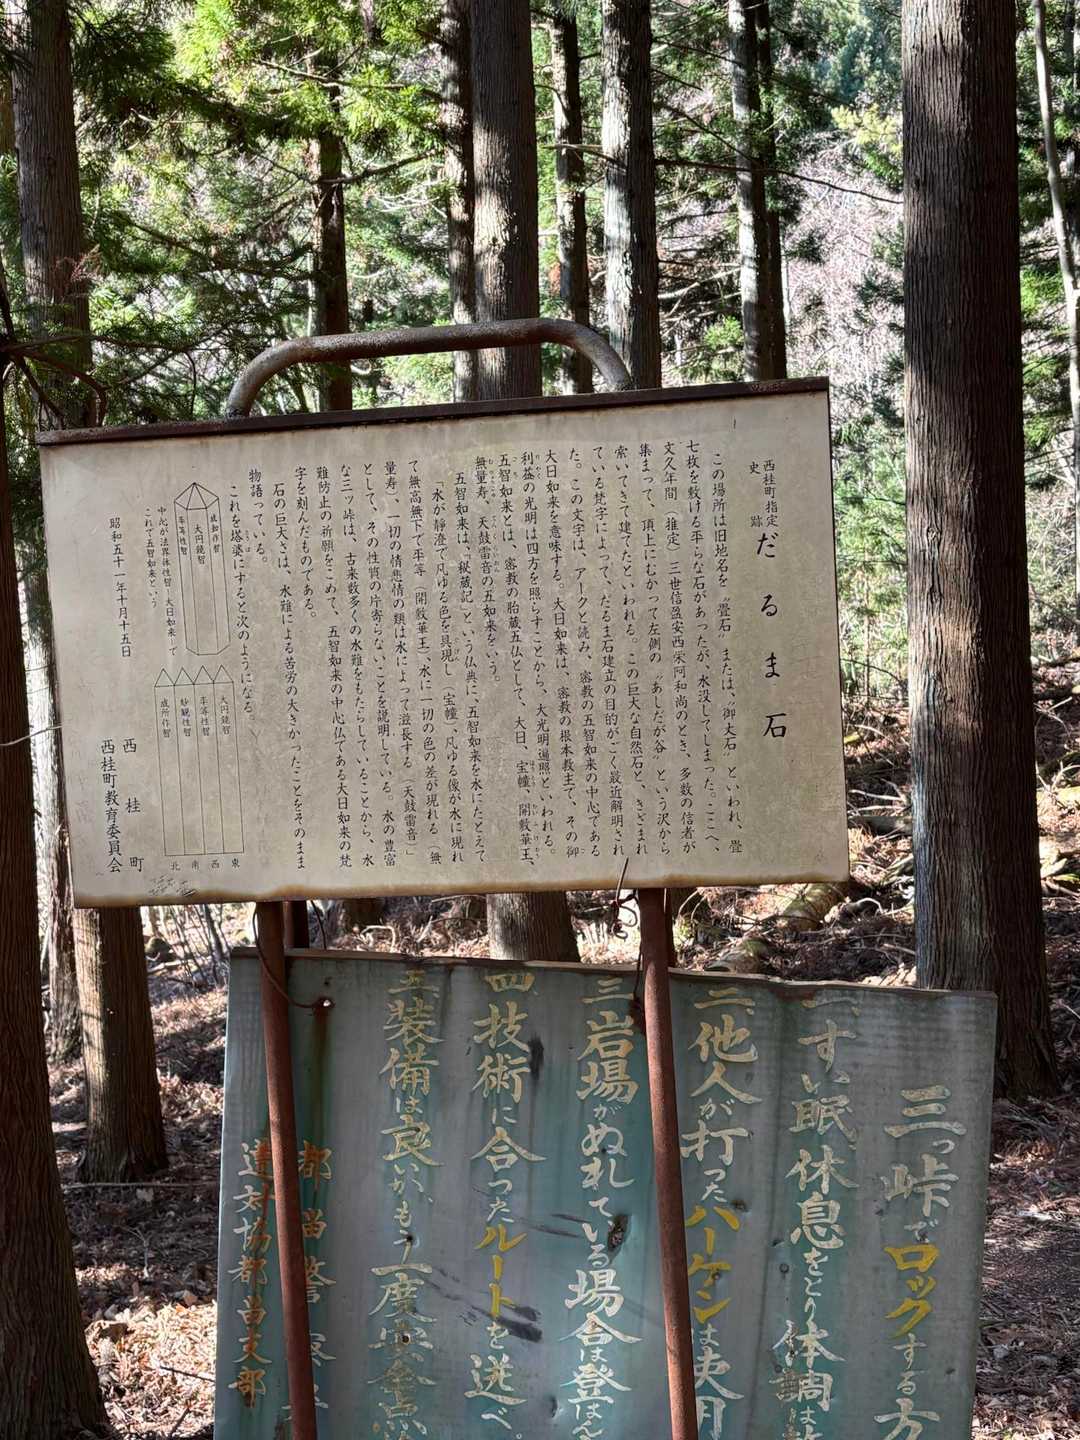 西桂町指定
史跡
だるま石
この場所は旧地名を〝畳石〟または、〝御大石〟といわれ、畳
七枚を敷ける平らな石があったが、水没してしまった。ここへ、
文久年間（推定）三世信盈安西栄阿和尚のとき、多数の信者が
集まって、頂上にむかって左側の〝あしだが谷〟という沢から
索いてきて建てたといわれる。この巨大な自然石と、きざまれ
ている梵字によって、だるま石建立の目的がごく最近解明され
た。この文字は、アークと読み、密教の五智如来の中心である
大日如来を意味する。大日如来は、密教の根本教主で、その御
利益の光明は四方を照らすことから、大光明遍照といわれる。
五智如来とは、密教の胎蔵五仏として、大日、宝幢、開敷華王、
無量寿、天鼓雷音の五如来をいう。
五智如来は、「秘蔵記」という仏典に、五智如来を水にたとえて
「水が靜澄で凡ゆる色を具現し（宝幢、凡ゆる像が水に現れ
て無高無下で平等（開敷華王）、水に一切の色の差が現れる（無
量寿）、一切の情悲情の類は水によって滋長する（天鼓雷音）」
として、その性質の片寄らないことを説明している。水の豊富
な三ッ峠は、古来数多くの水難をもたらしていることから、水
難防止の祈願をこめて、五智如来の中心仏である大日如来の梵
字を刻んだものである。
石の巨大さは、水難による苦労の大きかったことをそのまま
物語っている。
これを塔婆にすると次のようになる。
成動作智
大円鏡智
平等性智
中心が法界体性智・大日如来・で
これで五智如来という
大円鏡智
平等性智
妙観性智
成所作智
東
西
南
北
昭和五十一年十月十五日
西桂町
西桂町教育委員会
三っ峠でロックする方
一、すい眠、休息をとり体調は
二、他人が打ったハーケンは
三、岩場がぬれている場合は登はん
四、技術に合ったルートを送べ。
五、装備は良いか、もう一度
都留警察
遭対協都留支部